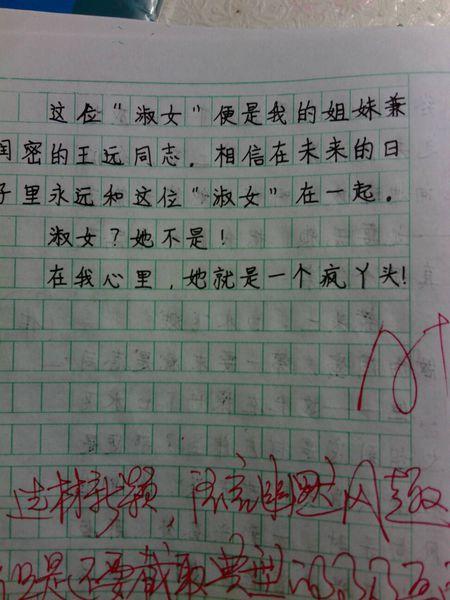 这位“淑女”便是我的姐妹兼
闺密的王远同志．相信在未来的日
子里永远和这位“淑女”在一起．
淑女？她不是！
在我心里，她就是一个疯丫头！
选材新颖，语言幽默风趣
但是不要截取典型的